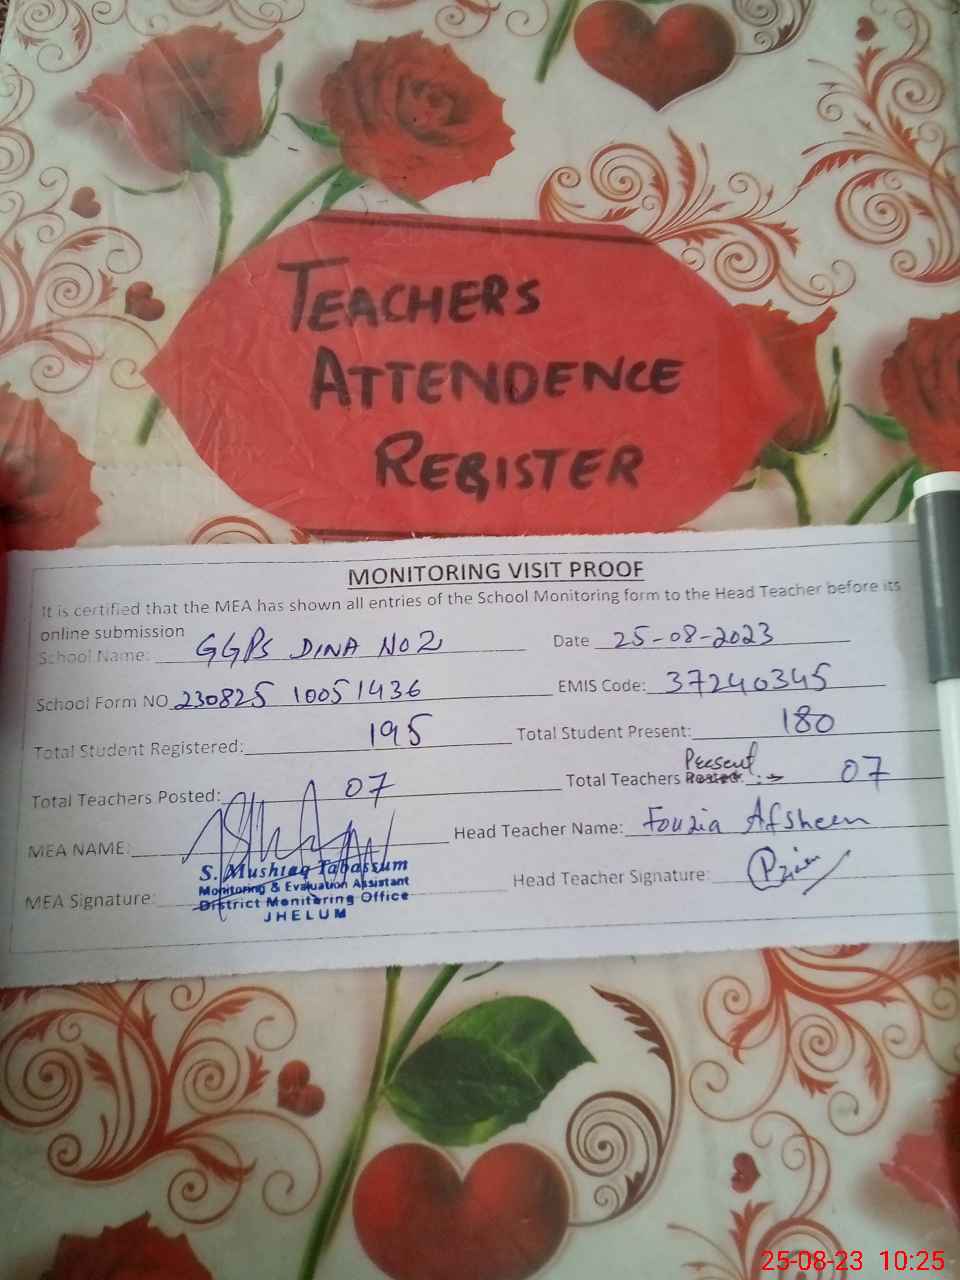 TEACHERS
ATTENDENCE
REGISTER
MONITORING VISIT PROOF
It is certified that the MEA has shown all entries of the School Monitoring form to the Head Teacher before its
online submission
School Name: GGPS DINA NO 2 Date 25-08-2023
School Form NO 230825 10051436 EMIS Code: 37240345
Total Student Registered: 195 Total Student Present: 180
Present
Total Teachers Posted: 07 Total Teachers 07
MEA NAME: Head Teacher Name: Fouzia Afsheen
S. Mushtaq Tabassum
Monitoring & Evaluation Assistant
MEA Signature: Head Teacher Signature:
District Monitoring Office
JHELUM
25-08-23 10:25